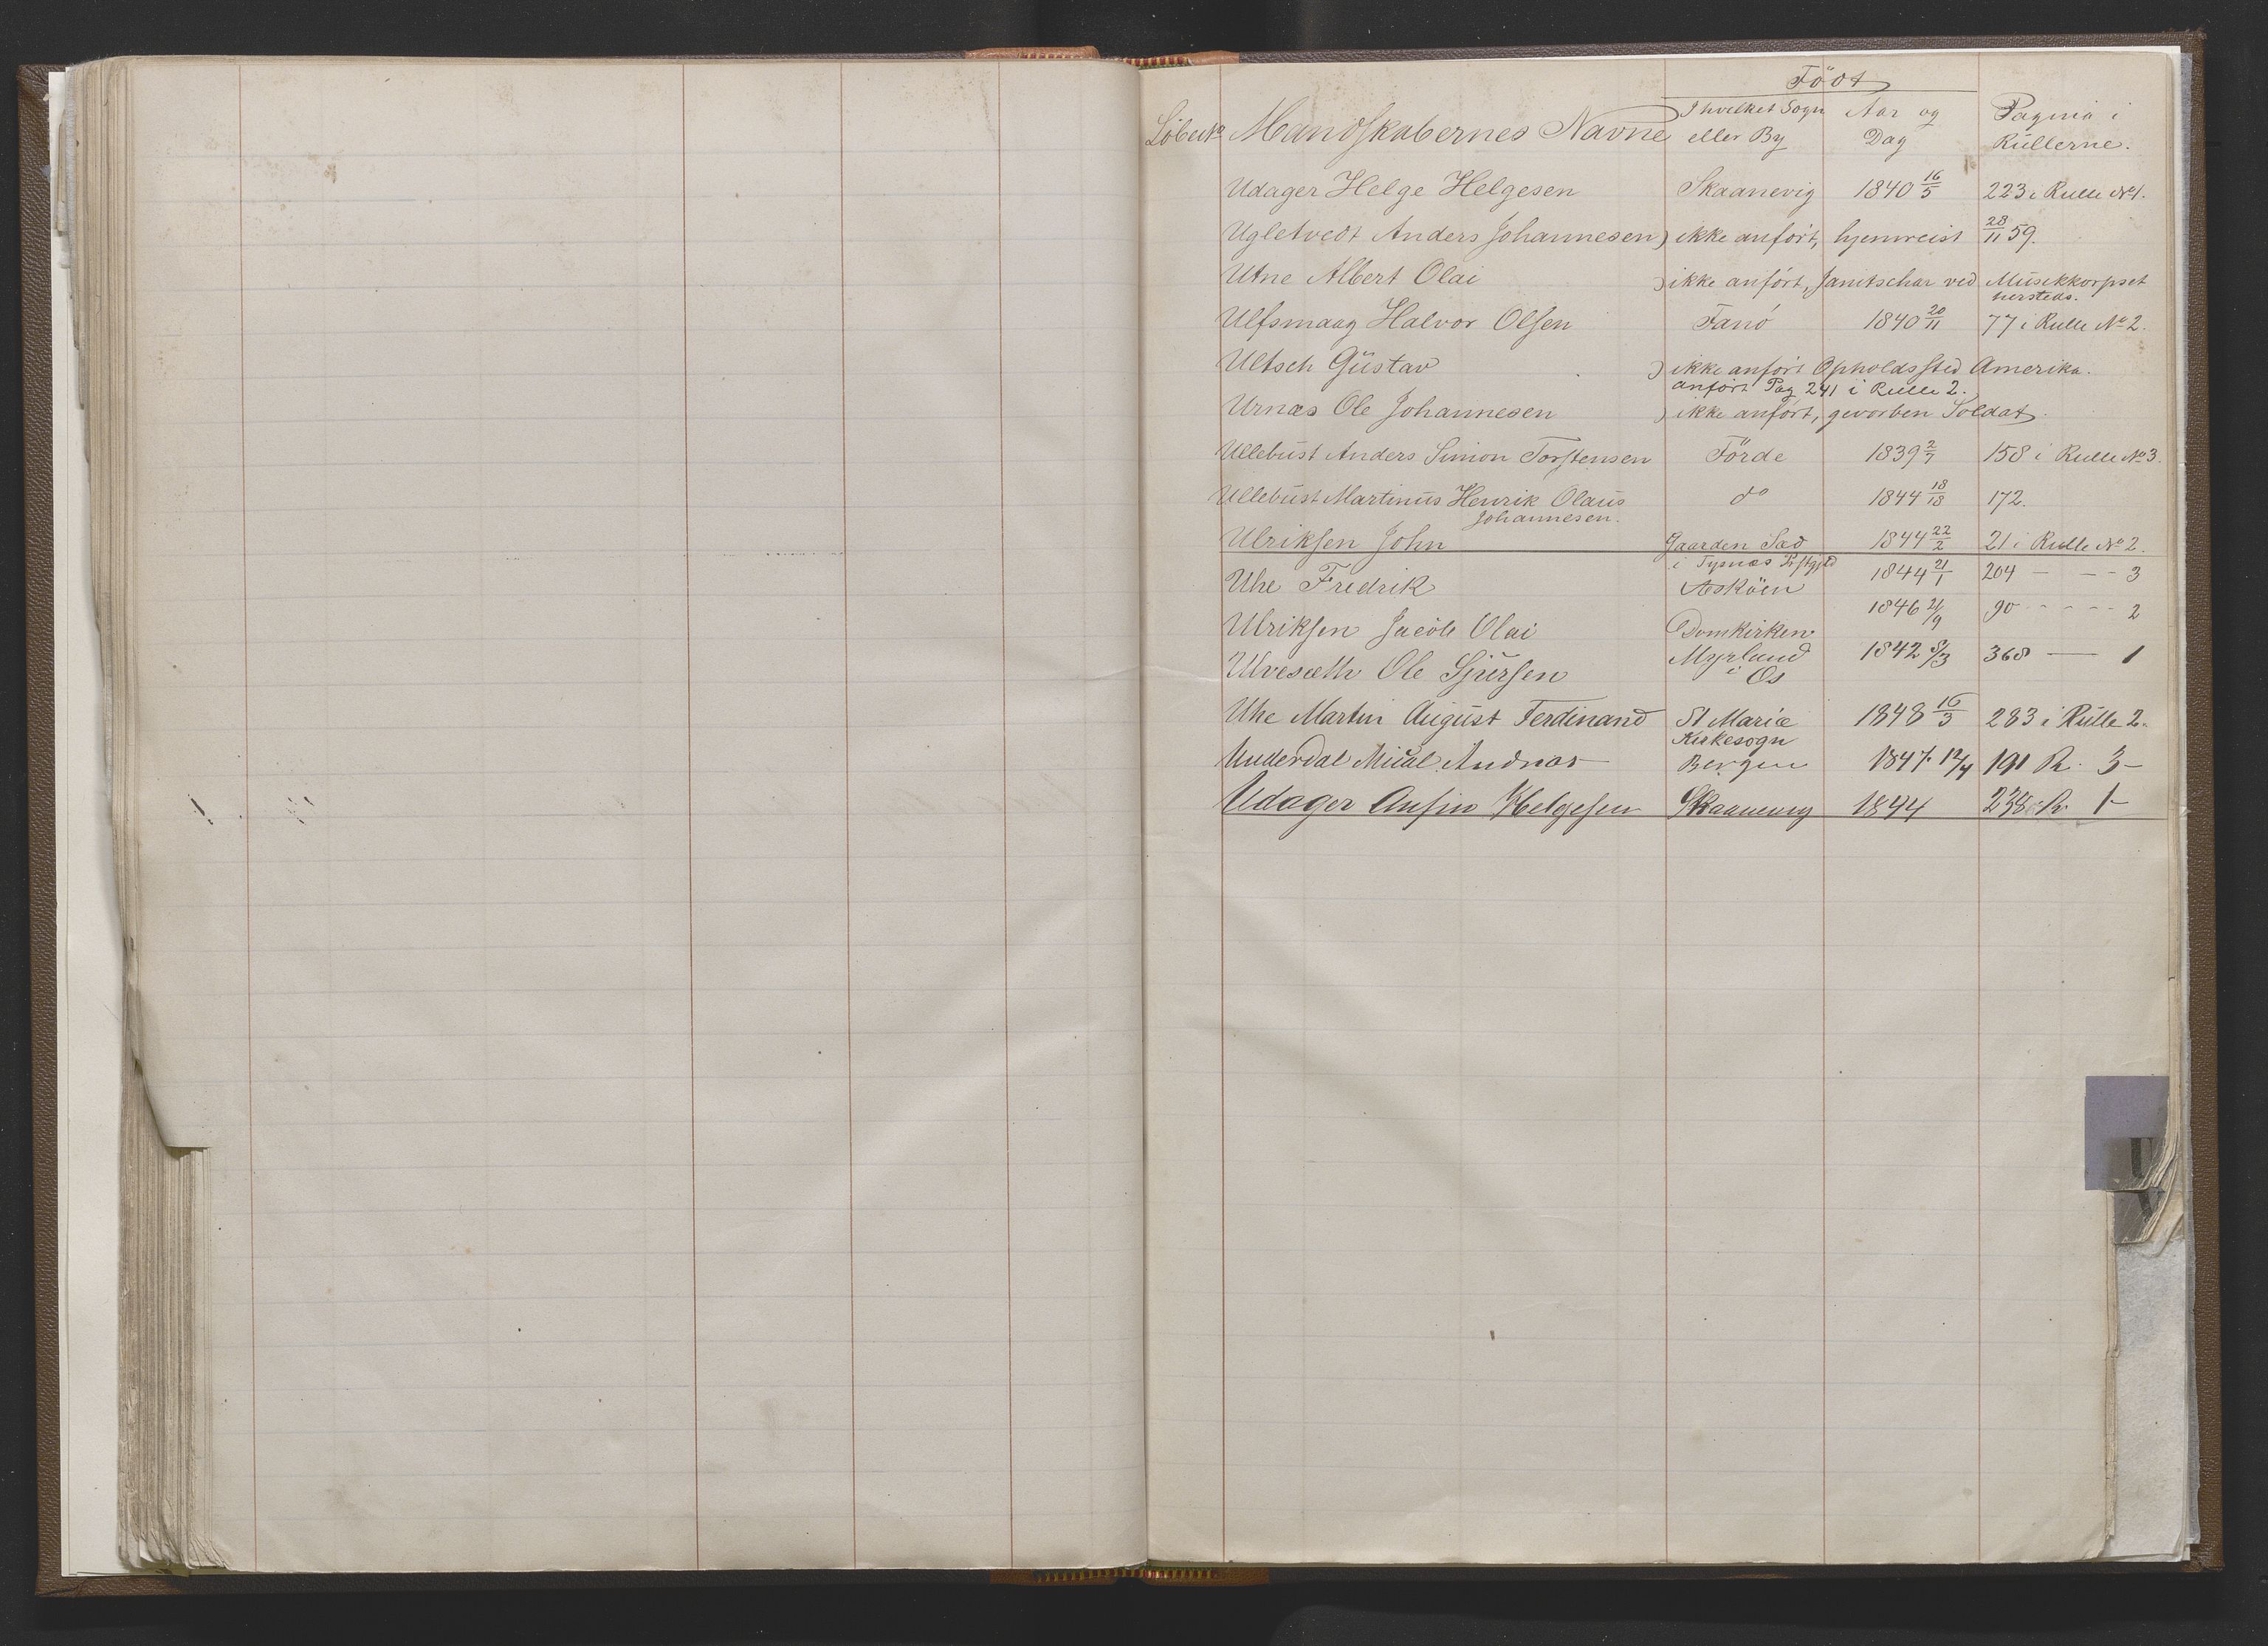 Födt
I hvilket Sogn Aar og Pagina i
Löbe No Mandskabernes Navne eller By Dag Rullerne.
Udager Helge Helgesen Skaanevig 1840 16/5 223 i Rulle No 1.
Ugletvedt Anders Johannesen) ikke anfört, hjemreist 28/11 59.
Utne Albert Olai ) ikke anfört, Janitschar ved Musikkorpset
hersteds.
Ulfsmaag Halvor Olsen Fanö 1840 20/11 77 i Rulle No 2.
Ultsch Gustav ) ikke anfört Opholdssted Amerika.
anfört Pag 241 i Rulle 2.
Urnæs Ole Johannesen ) ikke anfört, gevorben Soldat.
Ullebust Anders Simon Torstensen Förde 1839 2/7 158 i Rulle No 3.
Ullebust Martinus Henrik Olaus do 1844 18/18 172.
Johannesen.
Ulriksen John Gaarden Sad 1844 22/2 21 i Rulle No 2.
i Tysnæs
Uhe Fredrik Asköen 1844 21/1 204 — - - 3
Ulriksen Jacob Olai Domkirken 1846 21/9 90 - - - - 2
Ulvesæth Ole Sjursen Myrlund 1842 8/3 368 — 1
i Os
Uhe Martin August Ferdinand St Mariæ 1848 16/3 283 i Rulle 2.
Kirkesogn
Underdal Micäl Andreas Bergen 1847 12/4 191 R. 3-
Udager Ansin Helgesen Skaanevig 1844 238 R. 1-